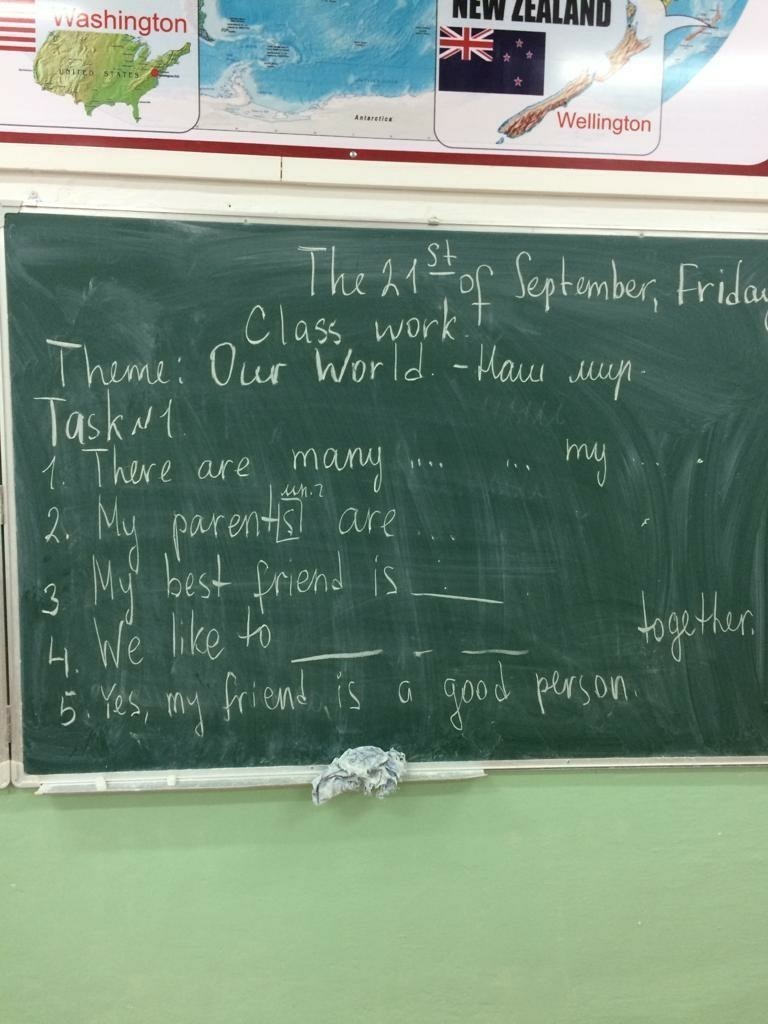 Washington
UNITED STATES
Antarctica
NEW ZEALAND
Wellington
The 21st of September, Friday
Class work.
Theme: Our World. - Наш мир.
Task №1.
1. There are many .... ... my ... .
мн.?
2. My parents are ... .
3 My best friend is ____
4. We like to ____ _ ____ together.
5. Yes, my friend is a good person.